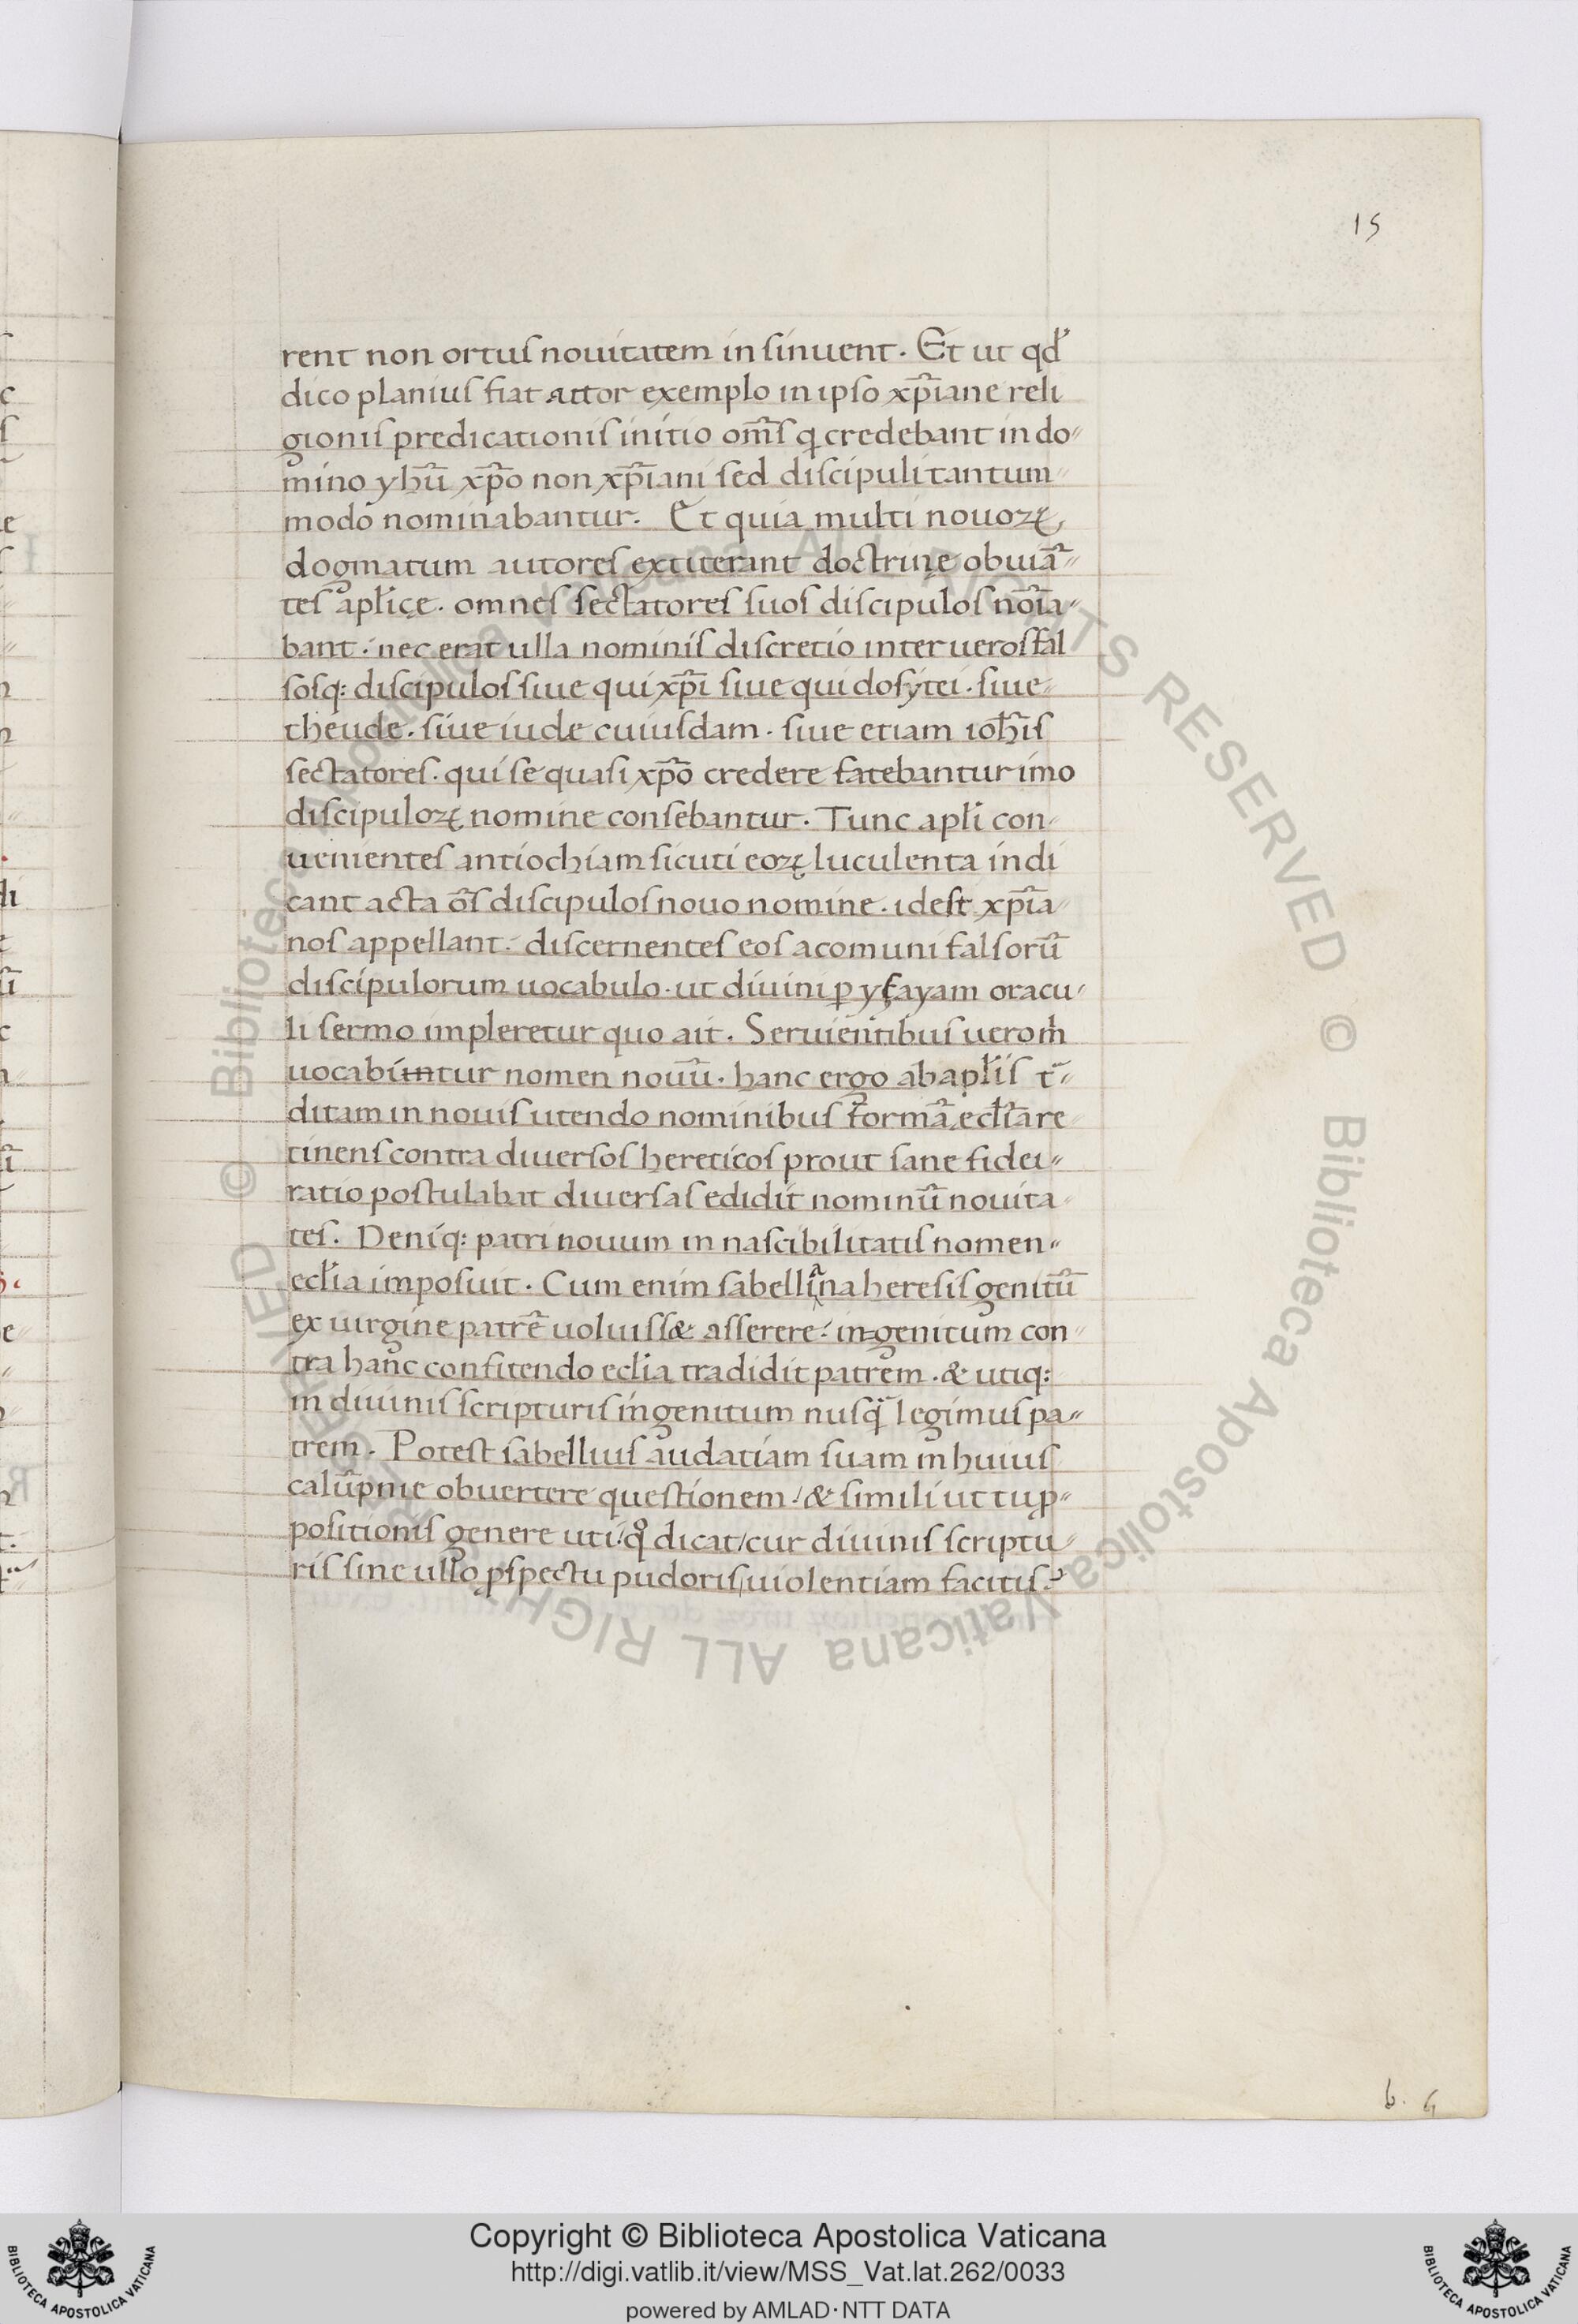 15
rent non ortus nouitatem insinuent. Et ut qđ
dico planius fiat attor exemplo in ipso xp̄iane reli
gionis predicationis initio om̄s q credebant in do-
mino yhū xp̄o non xp̄iani sed discipuli tantum-
modo nominabantur. Et quia multi nouoꝝ
dogmatum autores extiterant doctrinę obuiā-
tes apłicę. omnes sectatores suos discipulos nōīa-
bant. nec erat ulla nominis discretio inter ueros fal
sosq: discipulos siue qui xp̄i siue qui dosytei. siue-
theude. siue iude cuiusdam. siue etiam ioħ̄is
sectatores. qui se quasi xp̄o credere fatebantur imo
discipuloꝝ nomine consebantur. Tunc apłi con-
uenientes antiochiam sicuti eoꝝ luculenta indi
cant acta ōs discipulos nouo nomine. idest xp̄ia-
nos appellant. discernentes eos acomuni falsorū
discipulorum uocabulo. ut diuini ꝑ ysayam oracu-
li sermo impleretur quo ait. Seruientibus uero m̍
uocabuntur nomen nouū. hanc ergo ab apłis t̄-
ditam in nouis utendo nominibus formā ecłīa re
tinens contra diuersos hereticos prout sane fidei-
ratio postulabat diuersas edidit nominū nouita-
tes. Deniq: patri nouum in nascibilitatis nomen-
ecłia imposuit. Cum enim sabelliana heresis genitū
ex uirgine patrē uoluiss& asserere. in-genitum con-
tra hanc confitendo ecłia tradidit patrem. & utiq:
in diuinis scripturis ingenitum nusq̄ legimus pa-
trem. Potest sabellius audatiam suam in huius
calūpnie obuertere questionem. & simili ut tu ꝓ-
positionis genere uti. qͦ dicat/cur diuinis scriptu-
ris sine ullo ꝓspectu pudoris/uiolentiam facitis?
b. 4
© Biblioteca Apostolica Vaticana ALL RIGHTS RESERVED © Biblioteca Apostolica Vaticana ALL RIGHTS RESERVED
BIBLIOTECA APOSTOLICA VATICANA
Copyright © Biblioteca Apostolica Vaticana
http://digi.vatlib.it/view/MSS_Vat.lat.262/0033
powered by AMLAD·NTT DATA
BIBLIOTECA APOSTOLICA VATICANA